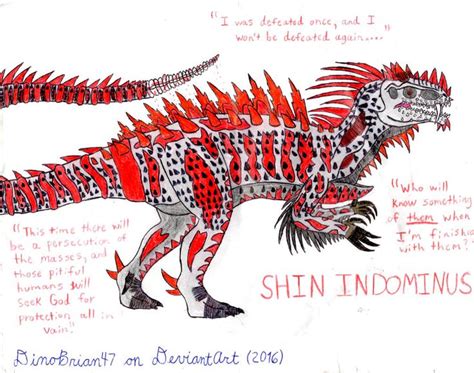 "I was defeated once, and I
won't be defeated again...."
"Who will
know something
of them when
I'm finished
with them?"
"This time there will
be a persecution of
the masses, and
those pitiful
humans will
seek God for
protection all in
vain."
SHIN INDOMINUS
DinoBrian47 on DeviantArt (2016)